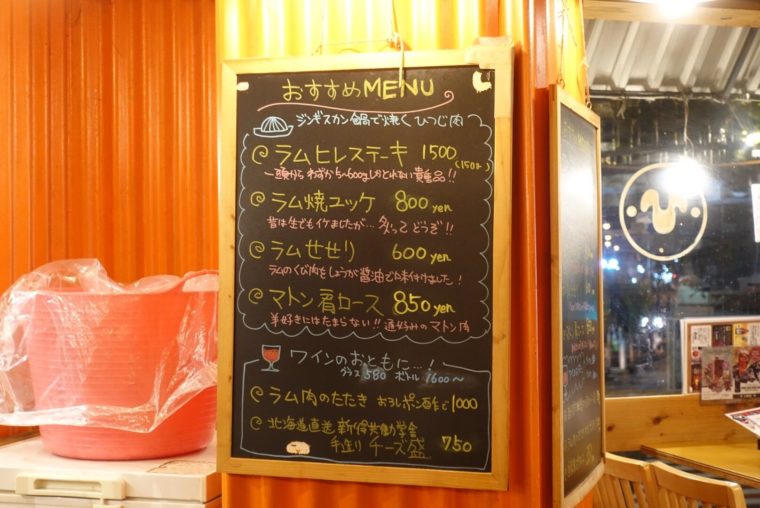 おすすめMENU
ジンギスカン鍋で焼くひつじ肉
ラムヒレステーキ 1500
一頭から わずか 〜600gしかとれない貴重品!!
ラム焼ユッケ 800yen
昔は生でもイケましたが… 炙ってどうぞ!!
ラムせせり 600yen
ラムのくび肉をしょうが醤油で味付けました!
マトン肩ロース 850yen
羊好きにはたまらない!! 通好みのマトン肉
ワインのおともに…!
グラス 580 ボトル 1600〜
ラム肉のたたき おろしポン酢で 1000
北海道直送 新得共働学舎
手造り チーズ盛 750